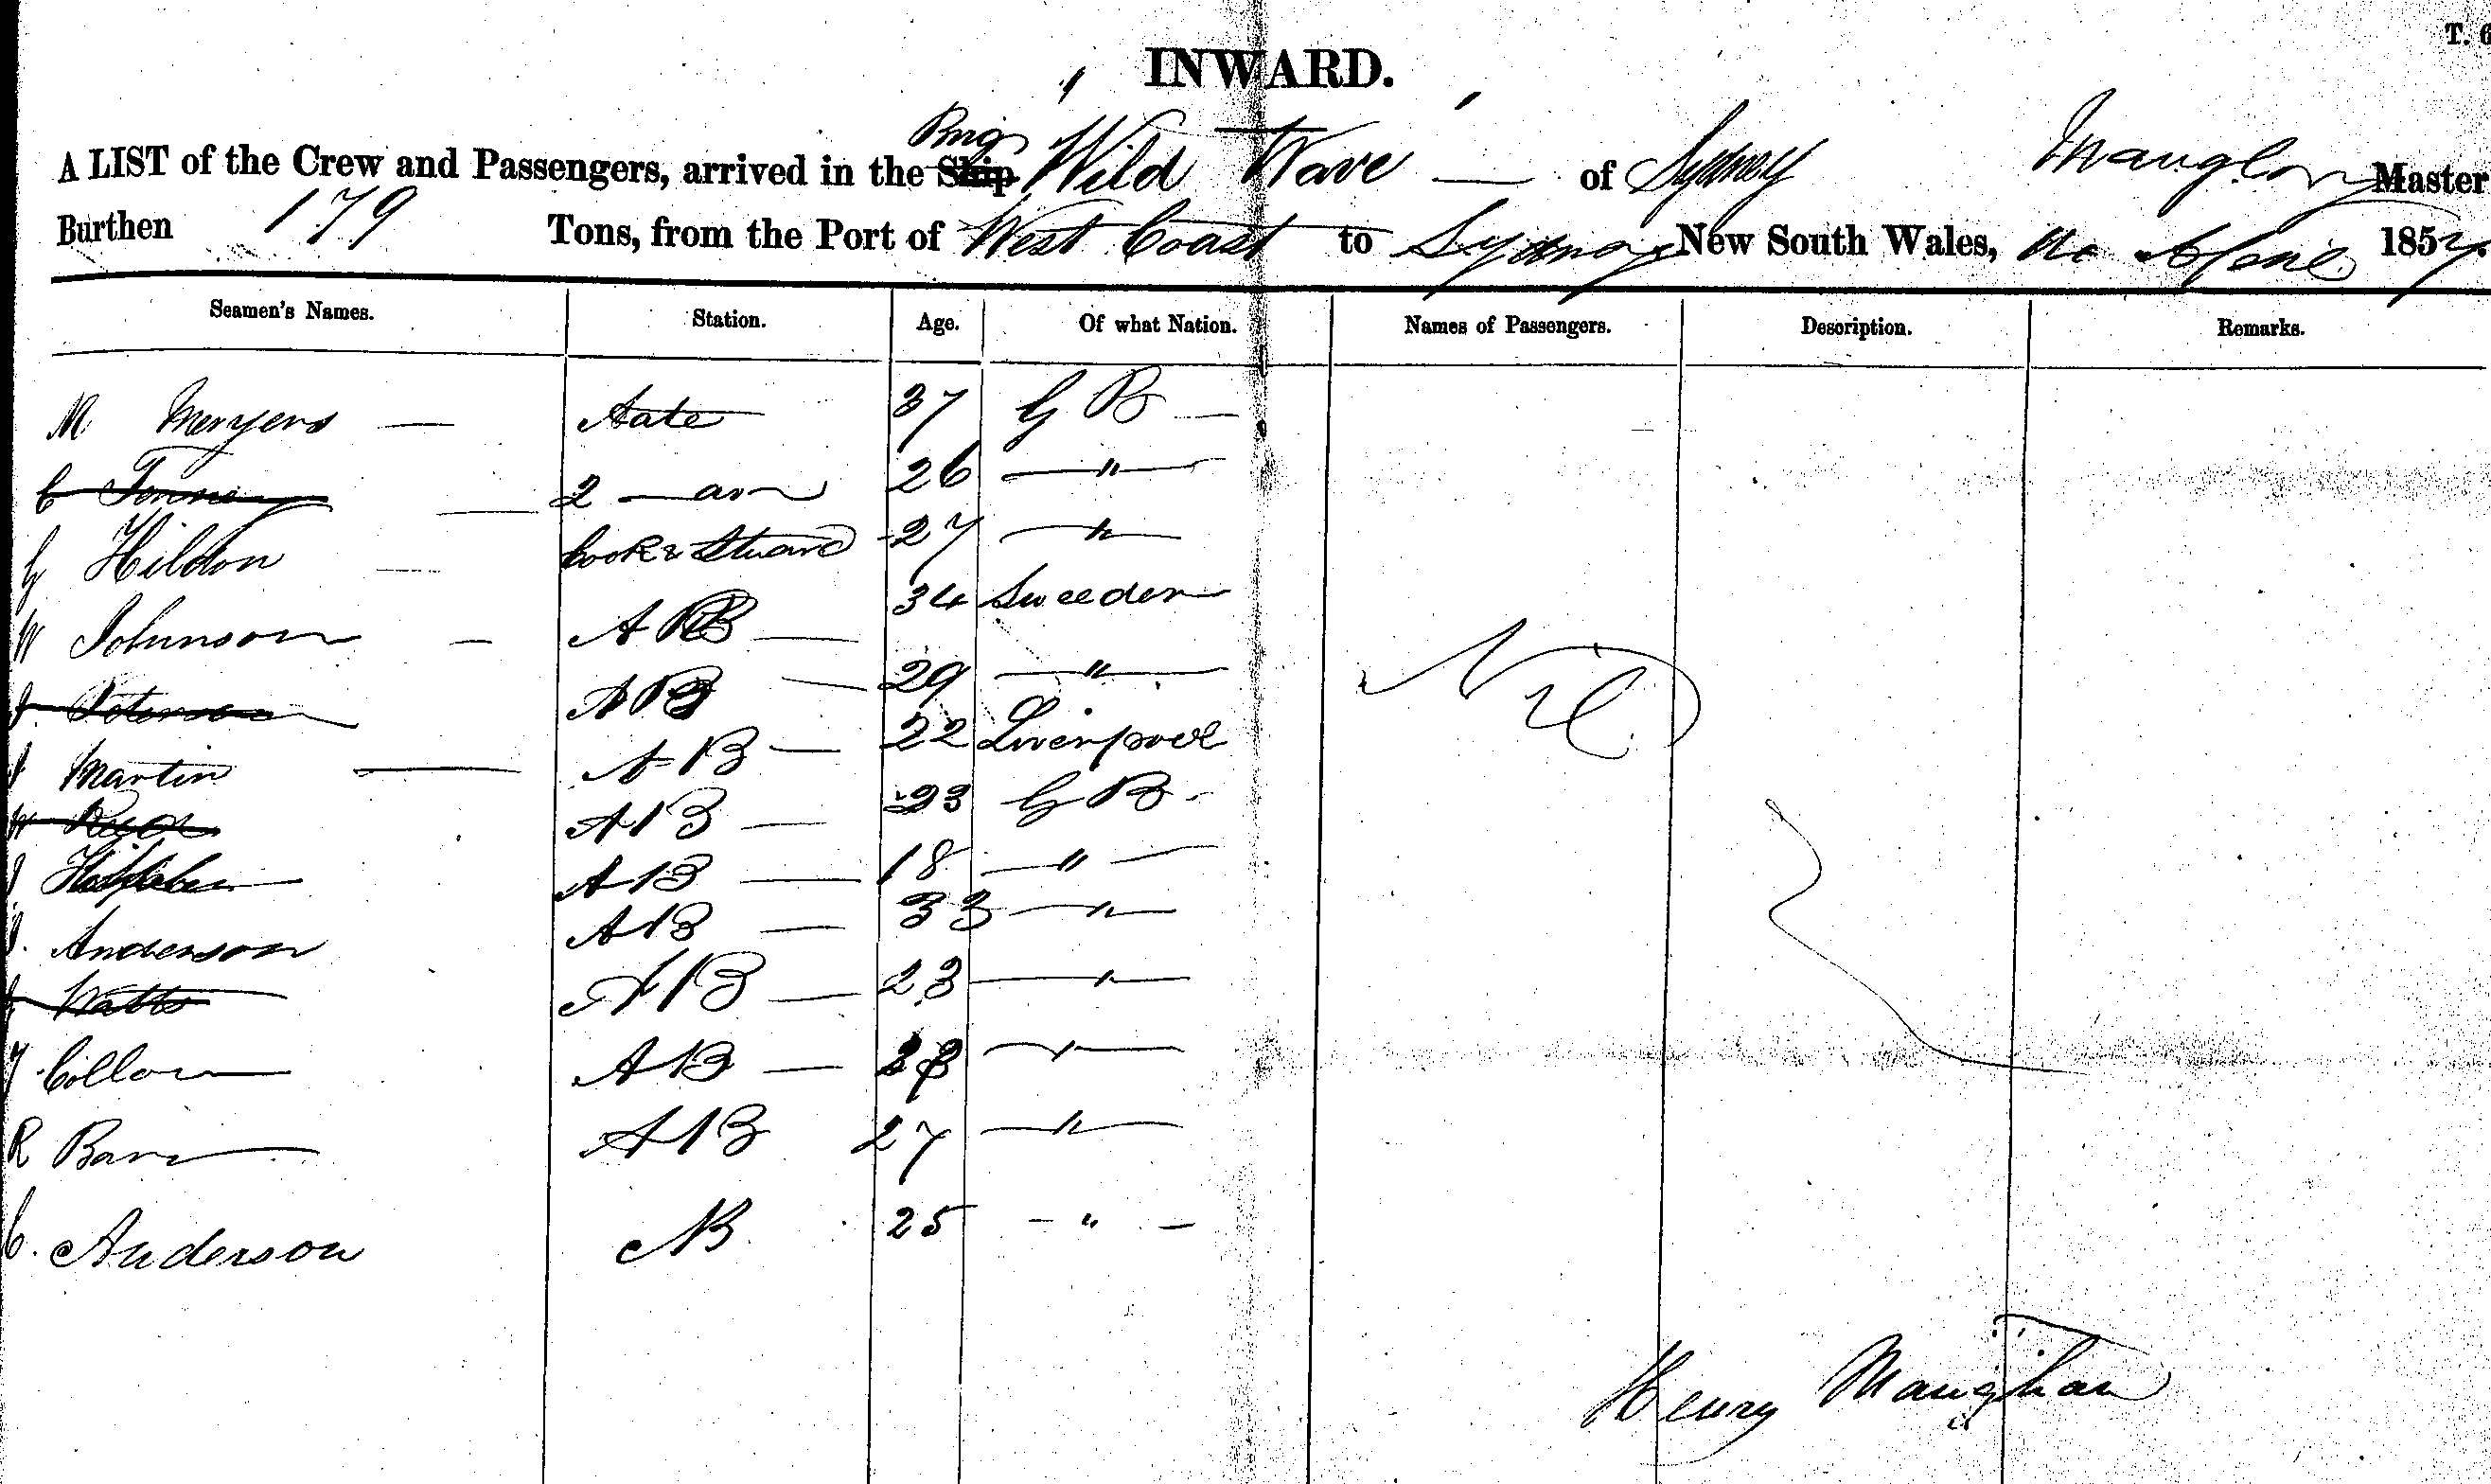 T. 6
INWARD.
A LIST of the Crew and Passengers, arrived in the Ship Brig Wild Wave — of Sydney Master
Burthen 179 Tons, from the Port of West Coast to Sydney New South Wales, 1857.
Seamen's Names. Station. Age. Of what Nation. Names of Passengers. Description. Remarks.
M Meryens — Mate 37 G B —
C 2 — 26 — " —
G Hildon — Cook & Steward 27 — " —
W Johnson — A B — 34 Sweeden
Peterson A B — 29 — " —
J Martin — A B — 22 Liverpool
W A B — 23 G B -
A B — 18 — " —
J. Anderson A B — 33 — " —
Watts A B — 23 — " —
A B — — " —
R A B 27 — " —
C. Anderson AB 25 - " -
Nil
Henry Maughan